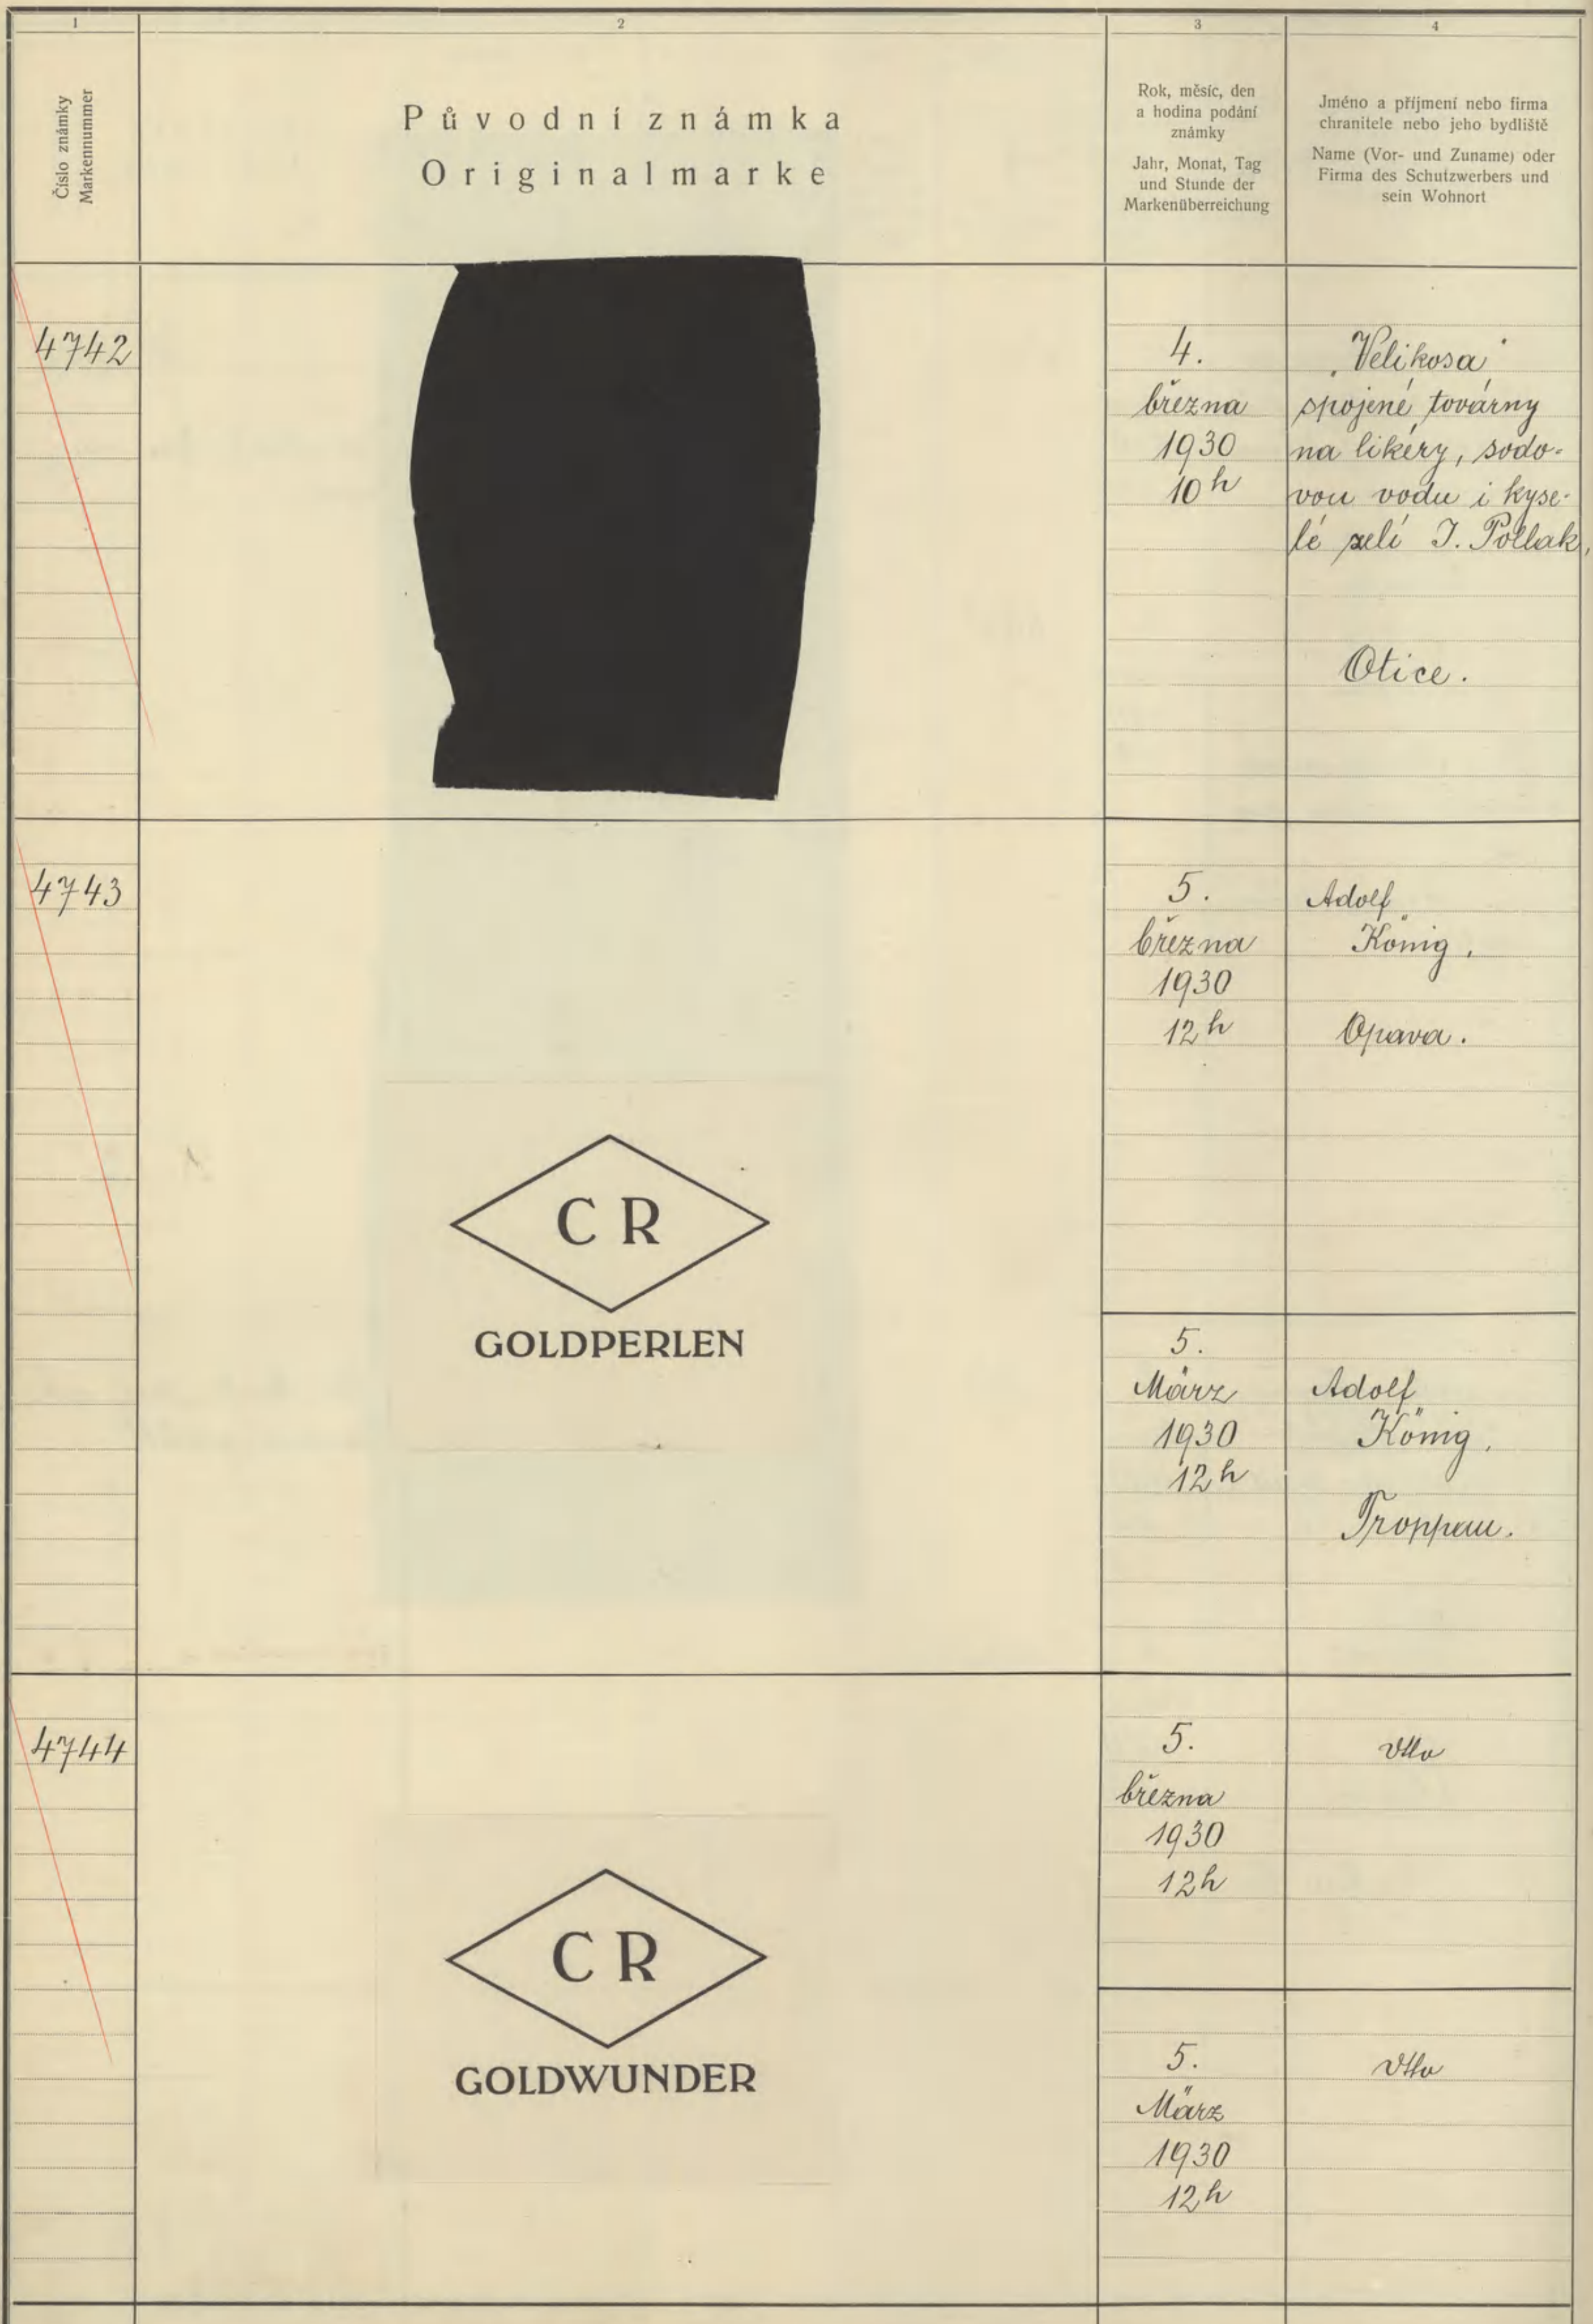 1
2
3
4
Číslo známky
Markennummer
Původní známka
Originalmarke
Rok, měsíc, den
a hodina podání
známky
Jahr, Monat, Tag
und Stunde der
Markenüberreichung
Jméno a příjmení nebo firma
chranitele nebo jeho bydliště
Name (Vor- und Zuname) oder
Firma des Schutzwerbers und
sein Wohnort
4742
4.
března
1930
10 h
"Velikosa"
spojené továrny
na likéry, sodo-
vou vodu i kyse-
lé zelí J. Pollak,
Otice.
4743
C R
GOLDPERLEN
5.
března
1930
12 h
Adolf
König,
Opava.
5.
März
1930
12 h
Adolf
König,
Troppau.
4744
C R
GOLDWUNDER
5.
března
1930
12 h
dtto
5.
März
1930
12 h
dtto